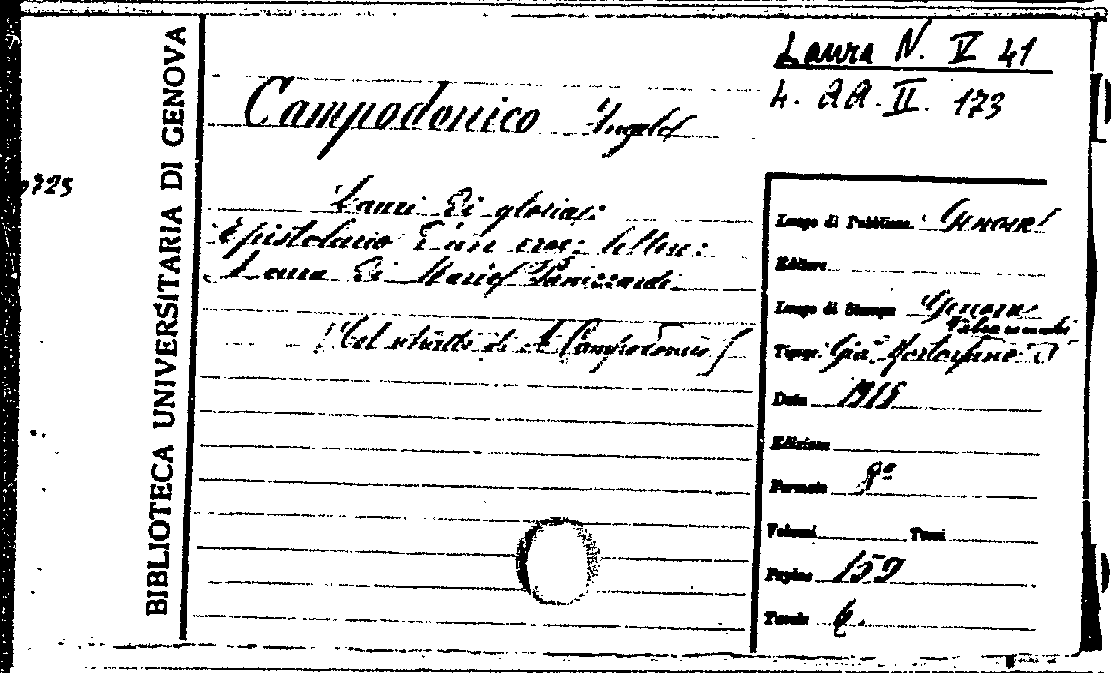 BIBLIOTECA UNIVERSITARIA DI GENOVA
Laura N. V 41
4. AA. II. 173
Campodonico Angelo
Lauri di gloria:
Epistolario d'un eroe: lettere:
Laura di Mario Panizzardi
(Col ritratto di A. Campodonico)
Luogo di Pubblicaz. Genova
Editore
Luogo di Stampa Genova
Tipogr. Già
Data
Edizione
Formato 8º
Volumi Tomi
Pagine 159
Tavole 6.